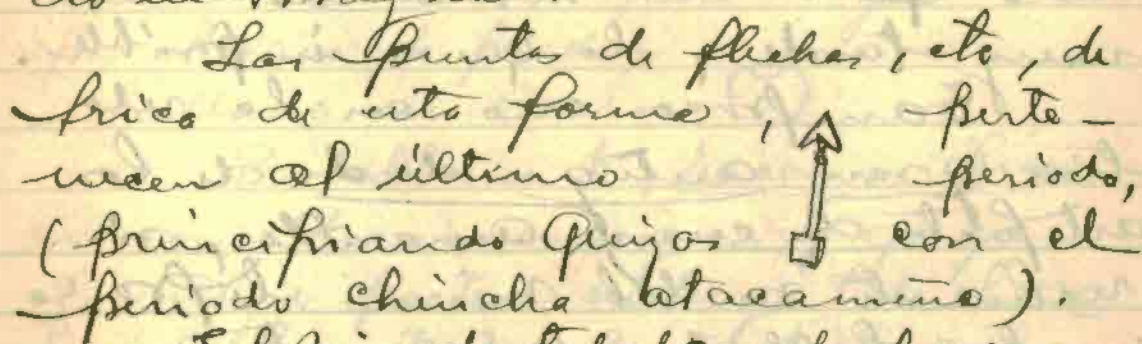 Las puntas de flechas, etc, de
Arica de esta forma, perte-
necen al último periodo,
(principiando Quizás con el
periodo chincha atacameño).